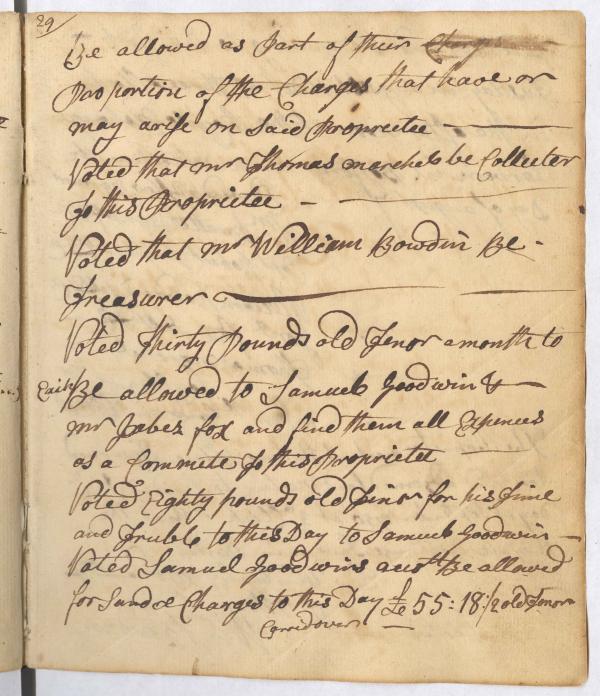 29
Be allowed as Part of their Charges
Proportion of the Charges that have or
may arise on Said Proprietee
Voted that mr Thomas marshel be Collecter
To this Proprietee
Voted that mr William Bowdin Be
Treasurer
Voted Thirty Pounds old Tenor a month to
Each Be allowed to Samuel Goodwin &
mr Jabez fox and find them all Expences
as a Commete To this Proprietee
Voted Eighty pounds old Tenor for his Time
and Truble to this Day to Samuel Goodwin
Voted Samuel Goodwins acut Be allowed
for Sundre Charges to this Day £ 55:18:/2 old Tenor
Carridover